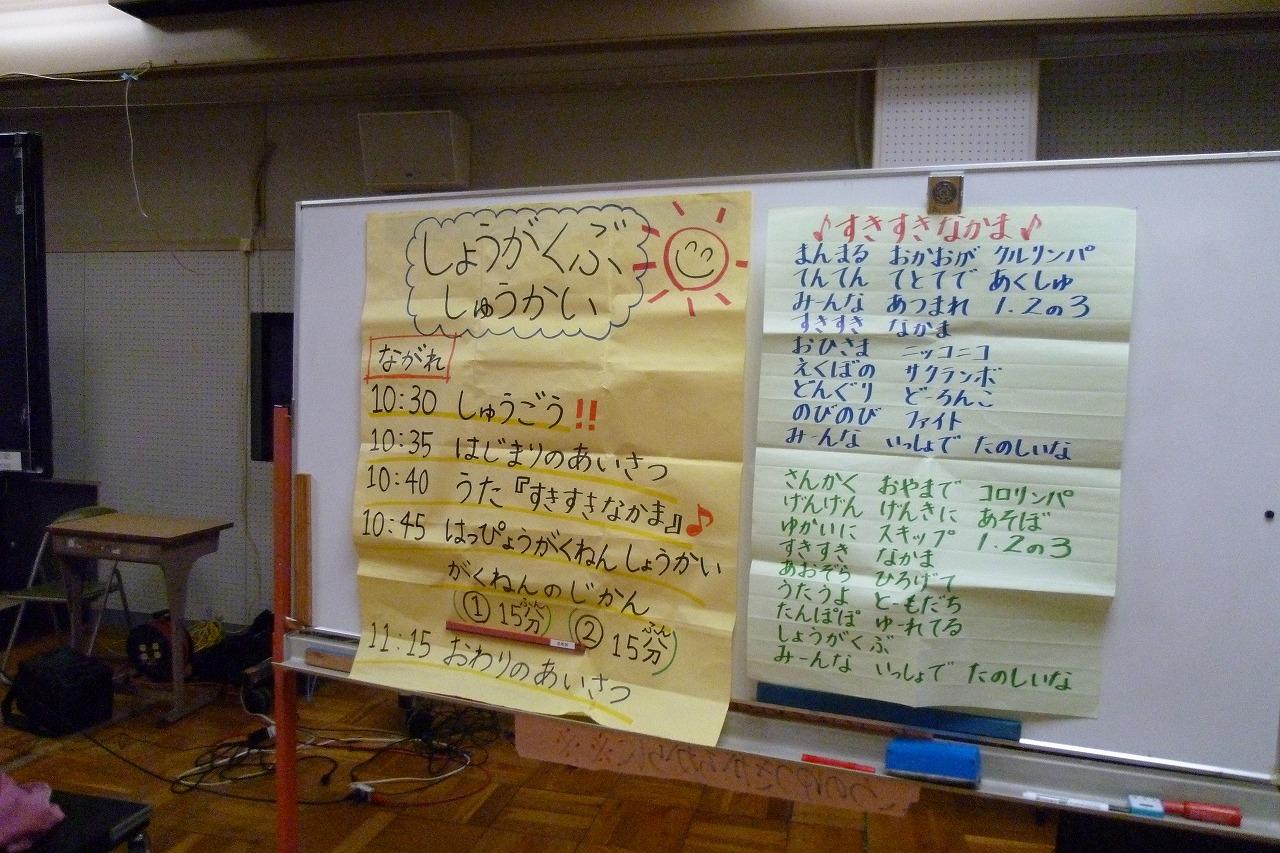 しょうがくぶ
しゅうかい
ながれ
10:30 しゅうごう!!
10:35 はじまりのあいさつ
10:40 うた『すきすきなかま』♪
10:45 はっぴょうがくねん しょうかい
がくねんのじかん
(① 15分 ② 15分)
ふん ふん
11:15 おわりのあいさつ
♪すきすきなかま♪
まんまる おかおが クルリンパ
てんてん てとてで あくしゅ
みーんな あつまれ 1.2の3
すきすき なかま
おひさま ニッコニコ
えくぼの サクランボ
どんぐり どーろんこ
のびのび ファイト
みーんな いっしょで たのしいな
さんかく おやまで コロリンパ
げんげん げんきに あそぼ
ゆかいに スキップ 1.2の3
すきすき なかま
あおぞら ひろげて
うたうよ とーもだち
たんぽぽ ゆーれてる
しょうがくぶ
みーんな いっしょで たのしいな